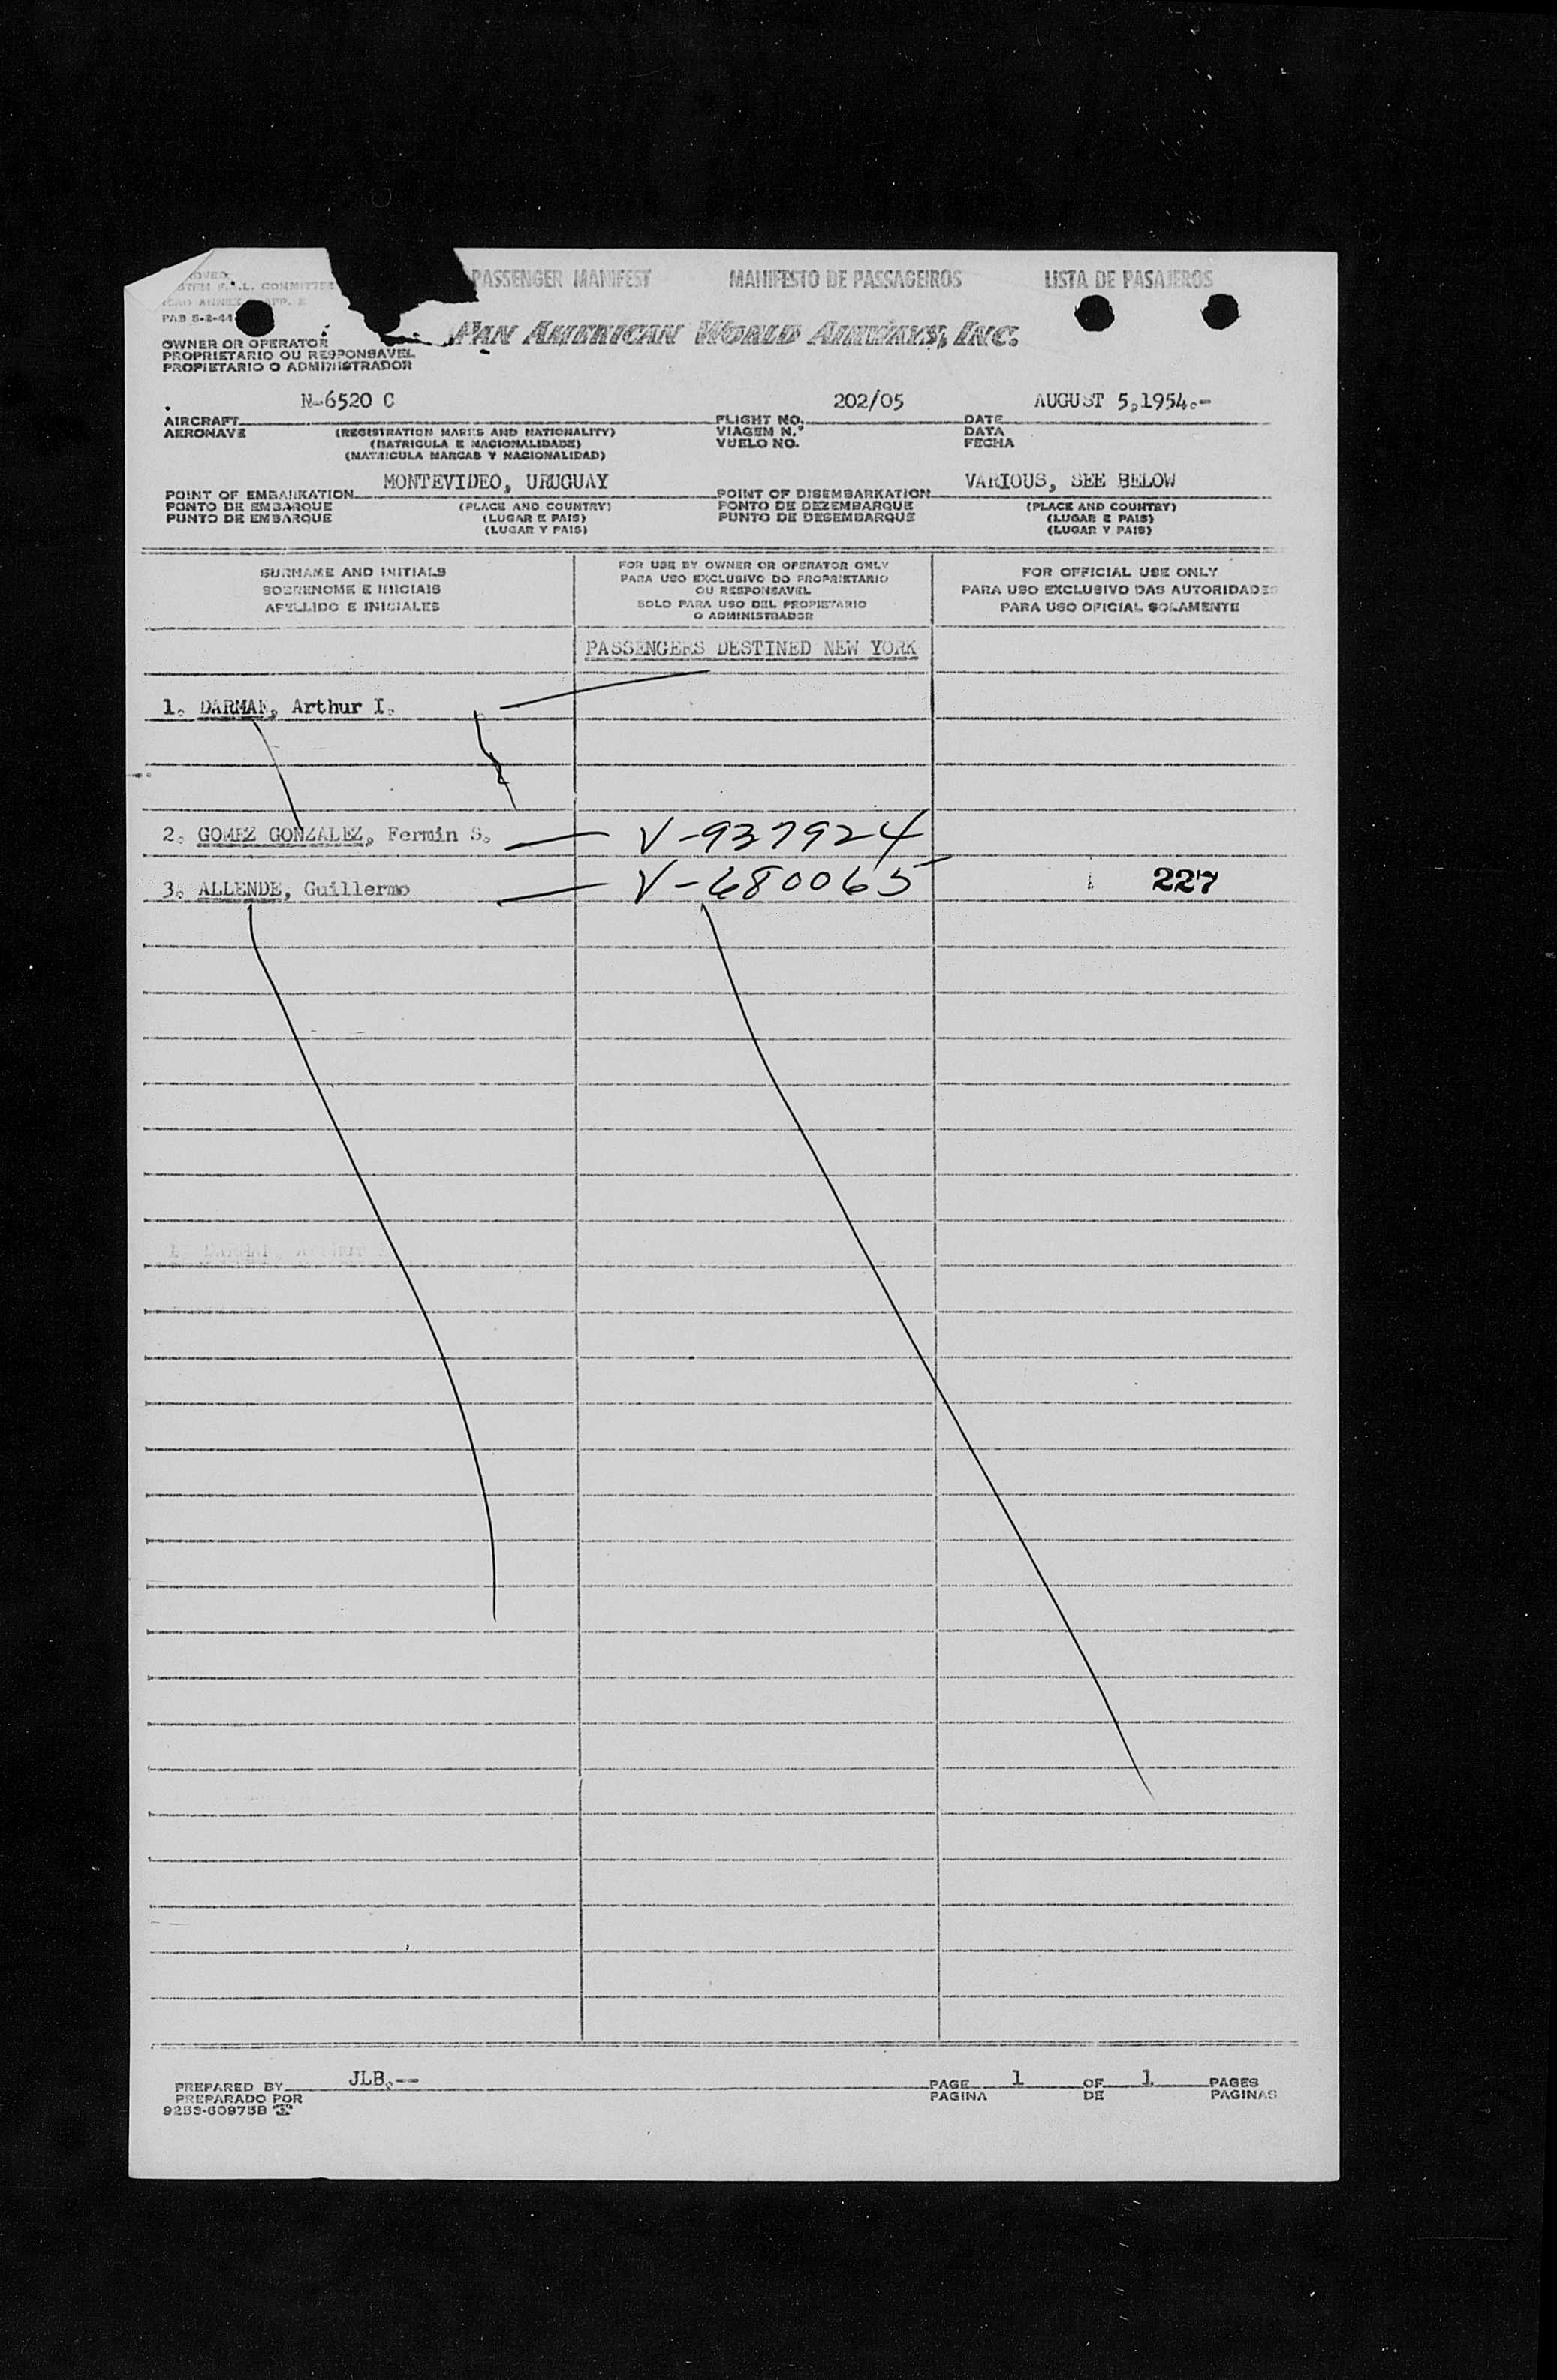 PASSENGER MANIFEST MANIFESTO DE PASSAGEIROS LISTA DE PASAJEROS
F.A.L. COMMITTEE
PAB 5-2-44
PAN AMERICAN WORLD AIRWAYS, INC.
OWNER OR OPERATOR
PROPRIETARIO OU RESPONSAVEL
PROPIETARIO O ADMINISTRADOR
N-6520 C 202/05 AUGUST 5,1954.-
AIRCRAFT FLIGHT NO. DATE
AERONAVE (REGISTRATION MARKS AND NATIONALITY) VIAGEM N.º DATA
(MATRICULA E NACIONALIDADE) VUELO NO. FECHA
(MATRICULA MARCAS Y NACIONALIDAD)
MONTEVIDEO, URUGUAY VARIOUS, SEE BELOW
POINT OF EMBARKATION POINT OF DISEMBARKATION
PONTO DE EMBARQUE (PLACE AND COUNTRY) PONTO DE DEZEMBARQUE (PLACE AND COUNTRY)
PUNTO DE EMBARQUE (LUGAR E PAIS) PUNTO DE DESEMBARQUE (LUGAR E PAIS)
(LUGAR Y PAIS) (LUGAR Y PAIS)
SURNAME AND INITIALS
SOBRENOME E INICIAIS
APELLIDO E INICIALES
FOR USE BY OWNER OR OPERATOR ONLY
PARA USO EXCLUSIVO DO PROPRIETARIO
OU RESPONSAVEL
SOLO PARA USO DEL PROPIETARIO
O ADMINISTRADOR
FOR OFFICIAL USE ONLY
PARA USO EXCLUSIVO DAS AUTORIDADES
PARA USO OFICIAL SOLAMENTE
PASSENGERS DESTINED NEW YORK
1. DARMAN, Arthur I.
2. GOMEZ GONZALEZ, Fermin S. V-937924
3. ALLENDE, Guillermo V-680065 227
JLB.--
PREPARED BY PAGE 1 OF 1 PAGES
PREPARADO POR PAGINA DE PAGINAS
9253-60975B